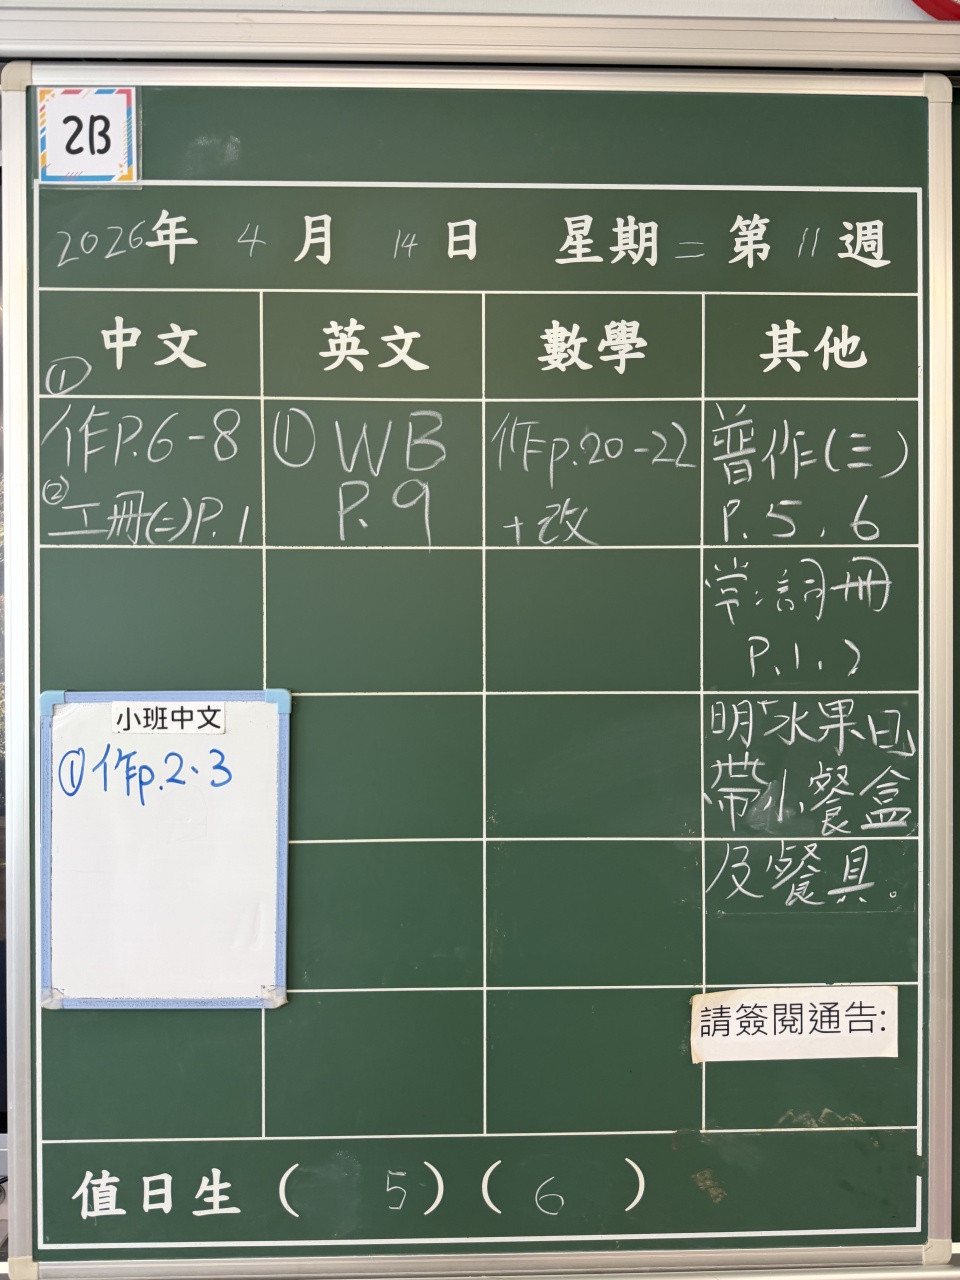 2B
2026年 4 月 14 日 星期二 第 11 週
中文
英文
數學
其他
①
作P.6-8
②
工冊(二)P.1
①WB
P.9
作p.20-22
+改
普作(三)
P.5,6
常:詞冊
P.1,2
明 水果日
帶小餐盒
及餐具。
小班中文
①作p.2、3
請簽閱通告:
值日生( 5)( 6 )